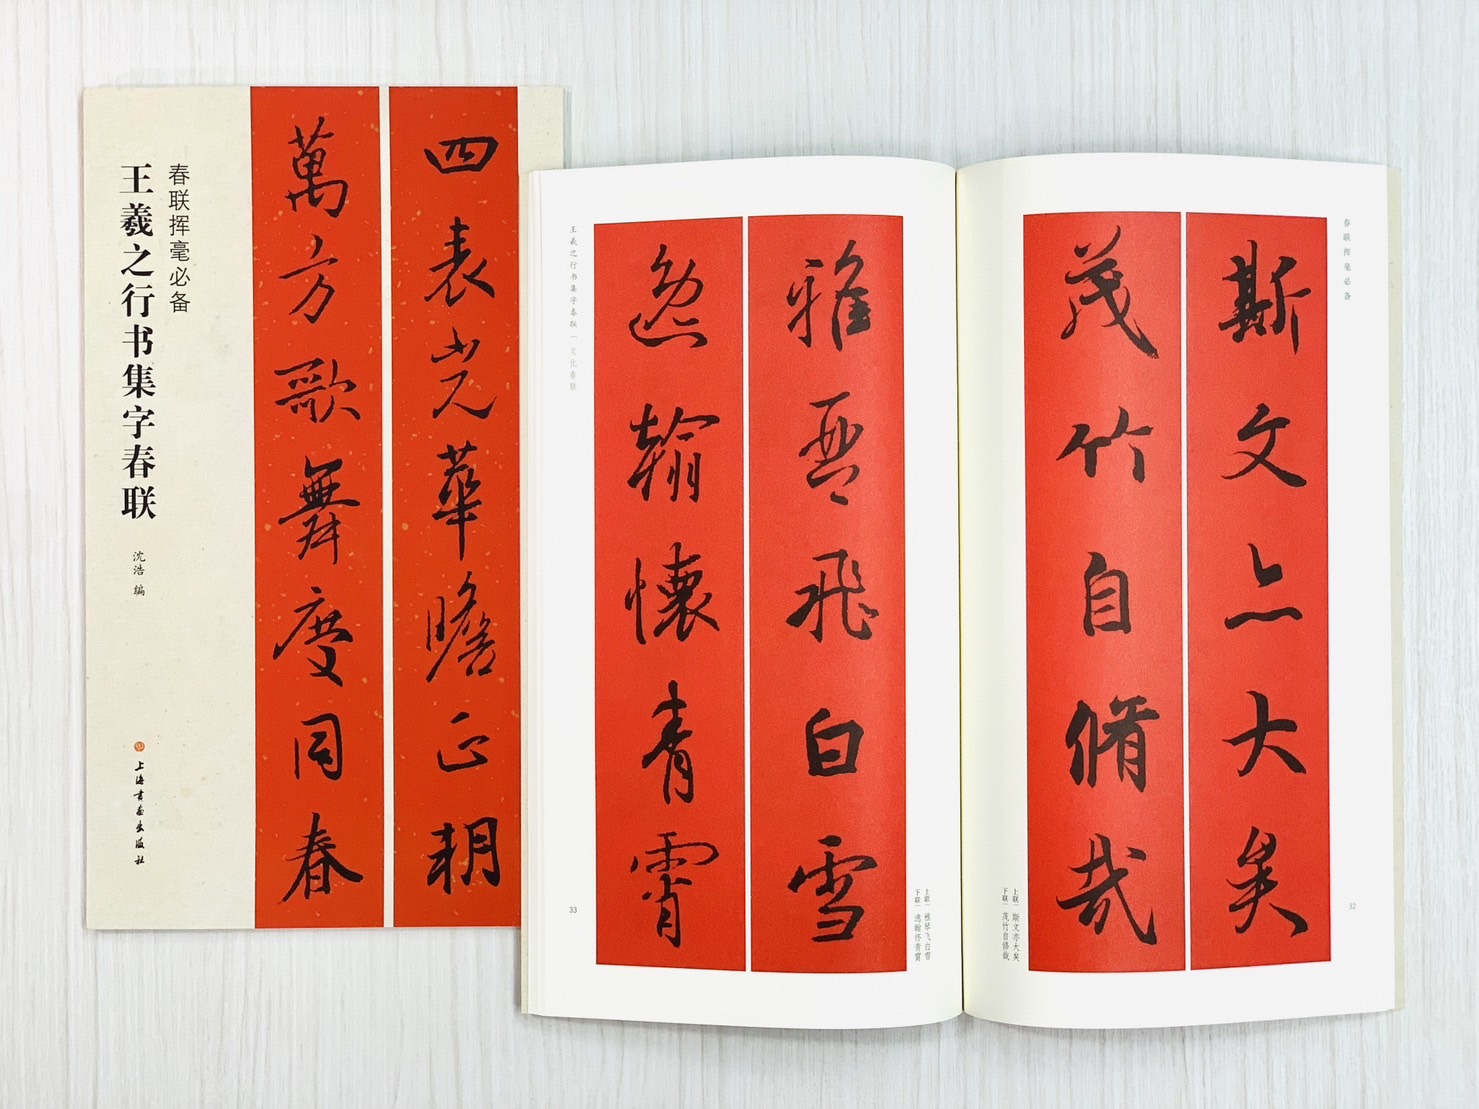 春联挥毫必备
王羲之行书集字春联
沈浩 编
上海书画出版社
四表光華瞻正朝
萬方歌舞慶同春
春联挥毫必备
斯文亦大矣
茂竹自脩哉
上联｜斯文亦大矣
下联｜茂竹自修哉
32
雅琴飛白雪
逸翰懷青霄
上联｜雅琴飞白雪
下联｜逸翰怀青霄
王羲之行书集字春联｜文化春联
33